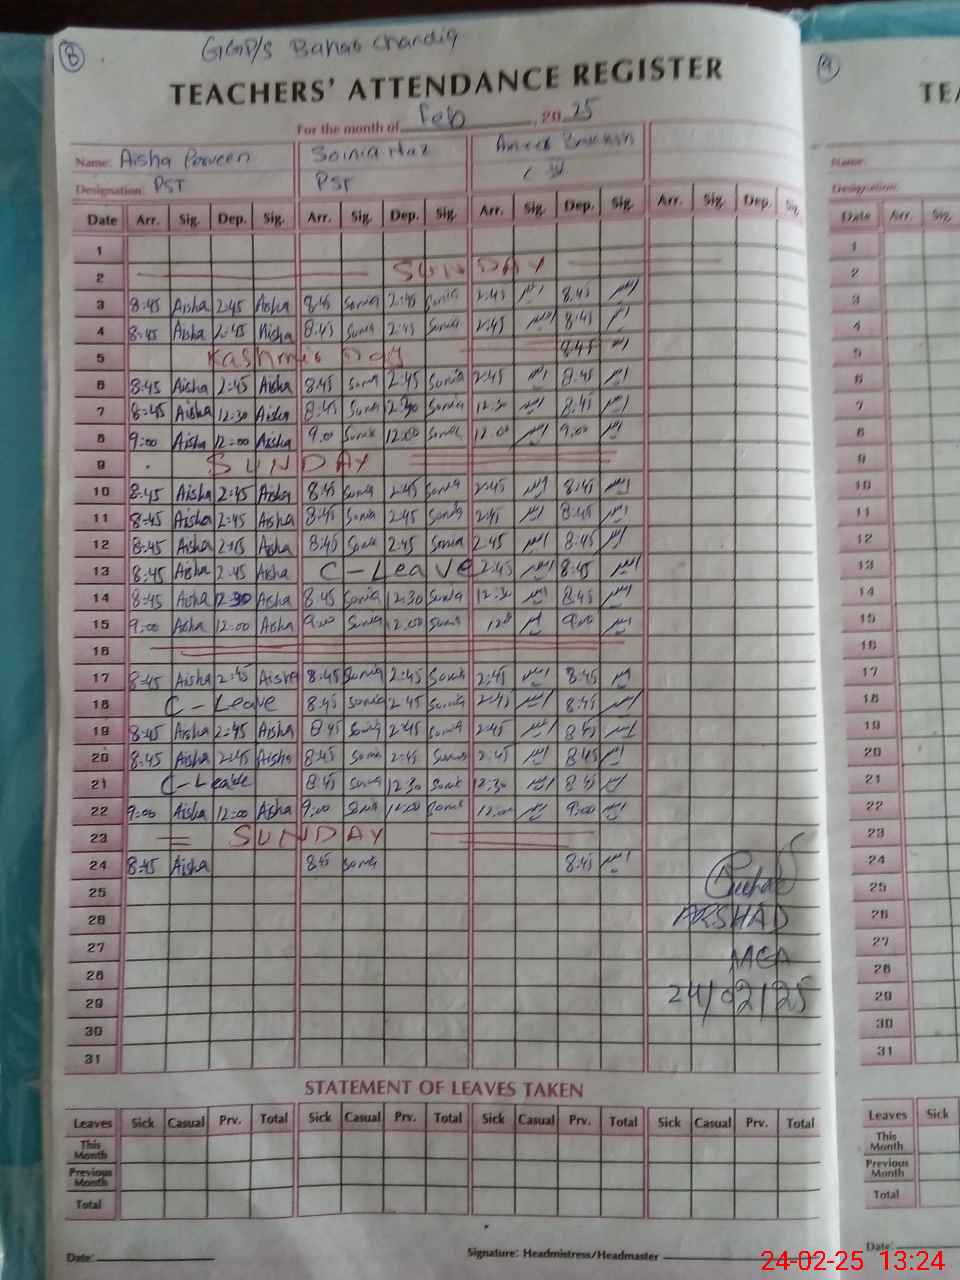 8 GGP/S
TEACHERS' ATTENDANCE REGISTER
For the month of Feb, 2025
Name: Aisha Parveen Sonia Naz
Designation: PST PST
Date Arr. Sig. Dep. Sig. Arr. Sig. Dep. Sig. Arr. Sig. Dep. Sig. Arr. Sig. Dep. Sig.
1
2 SUNDAY
3 8:45 Aisha 2:45 Aisha 8:45 Sonia 2:45 Sonia 2:45 8:45
4 8:45 Aisha 2:45 Aisha 8:45 Sonia 2:45 Sonia 2:45 8:45
5 Kashmir Day 8:45
6 8:45 Aisha 2:45 Aisha 8:45 Sonia 2:45 Sonia 2:45 8:45
7 8:45 Aisha 12:30 Aisha 8:45 Sonia 2:30 Sonia 12:30 8:45
8 9:00 Aisha 12:00 Aisha 9:00 Sonia 12:00 Sonia 12:00 9:00
9 SUNDAY
10 8:45 Aisha 2:45 Aisha 8:45 Sonia 2:45 Sonia 2:45 8:45
11 8:45 Aisha 2:45 Aisha 8:45 Sonia 2:45 Sonia 2:45 8:45
12 8:45 Aisha 2:45 Aisha 8:45 Sonia 2:45 Sonia 2:45 8:45
13 8:45 Aisha 2:45 Aisha C-Leave 2:45 8:45
14 8:45 Aisha 12:30 Aisha 8:45 Sonia 12:30 Sonia 12:30 8:45
15 9:00 Aisha 12:00 Aisha 9:00 Sonia 12:00 Sonia 9:00
16
17 8:45 Aisha 2:45 Aisha 8:45 Sonia 2:45 Sonia 2:45 8:45
18 C-Leave 8:45 Sonia 2:45 Sonia 2:45 8:45
19 8:45 Aisha 2:45 Aisha 8:45 Sonia 2:45 Sonia 2:45 8:45
20 8:45 Aisha 2:45 Aisha 8:45 Sonia 2:45 Sonia 2:45 8:45
21 C-Leave 8:45 Sonia 12:30 Sonia 12:30 8:45
22 9:00 Aisha 12:00 Aisha 9:00 Sonia 12:00 Sonia 12:00 9:00
23 = SUNDAY
24 8:45 Aisha 8:45 Sonia 8:45
25
26 ARSHAD
27
28 MEA
29 24/02/25
30
31
STATEMENT OF LEAVES TAKEN
Leaves Sick Casual Prv. Total Sick Casual Prv. Total Sick Casual Prv. Total Sick Casual Prv. Total
This Month
Previous Month
Total
Date: Signature: Headmistress/Headmaster
9
TEA
Name:
Designation:
Date Arr. Sig.
1
2
3
4
5
6
7
8
9
10
11
12
13
14
15
16
17
18
19
20
21
22
23
24
25
26
27
28
29
30
31
Leaves Sick
This Month
Previous Month
Total
Date:
24-02-25 13:24